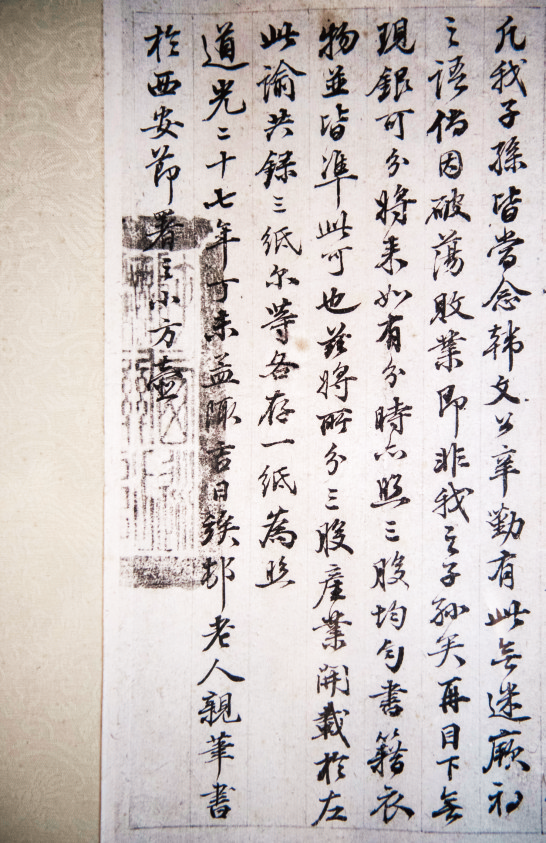 凡我子孫皆當念韩文公辛勤有此無迷厥初
之語倘因破蕩敗業即非我之子孙矣再目下無
現銀可分將来如有分時亦照三股均匀書籍衣
物並皆準此可也兹将所分三股產業開載於左
此諭共録三纸尔等各存一纸為照
道光二十七年丁未孟陬吉日竢邨老人親筆書
於西安節署之小方壺